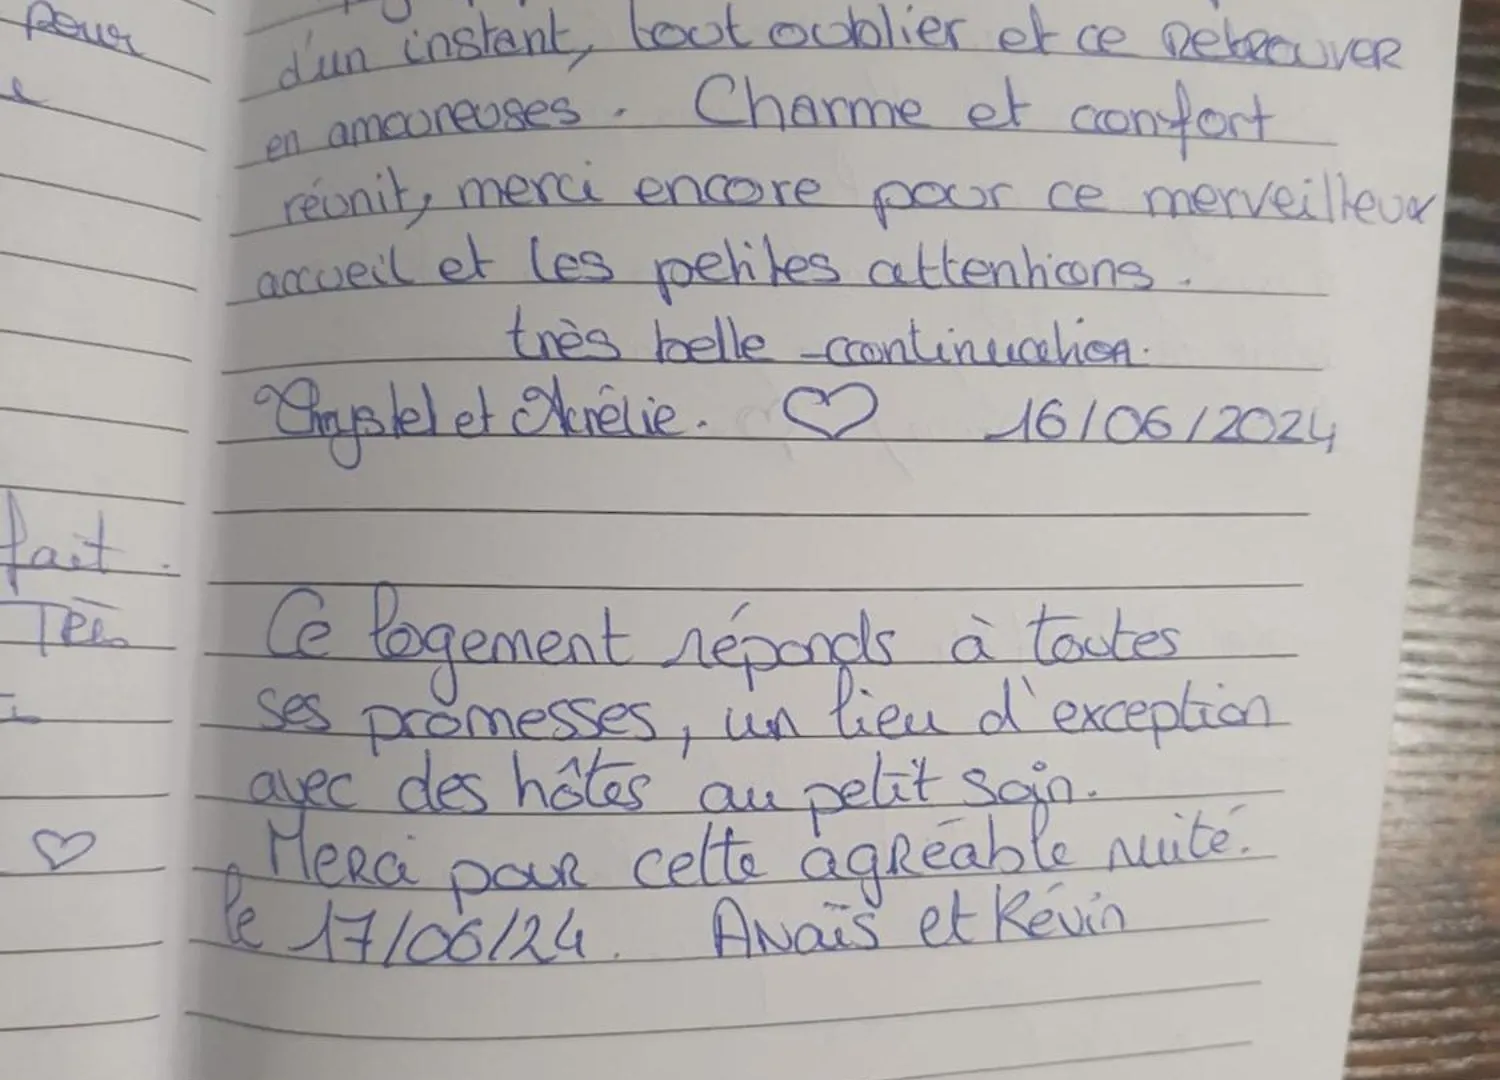 pour
e
fait.
Très
d'un instant, tout oublier et ce retrouver
en amoureuses. Charme et confort
réunit, merci encore pour ce merveilleux
accueil et les petites attentions.
très belle continuation.
Chrystel et Aurélie. ♡ 16/06/2024
Ce logement réponds à toutes
ses promesses, un lieu d'exception
avec des hôtes au petit soin.
Merci pour cette agréable nuité.
le 17/06/24. Anaïs et Kévin